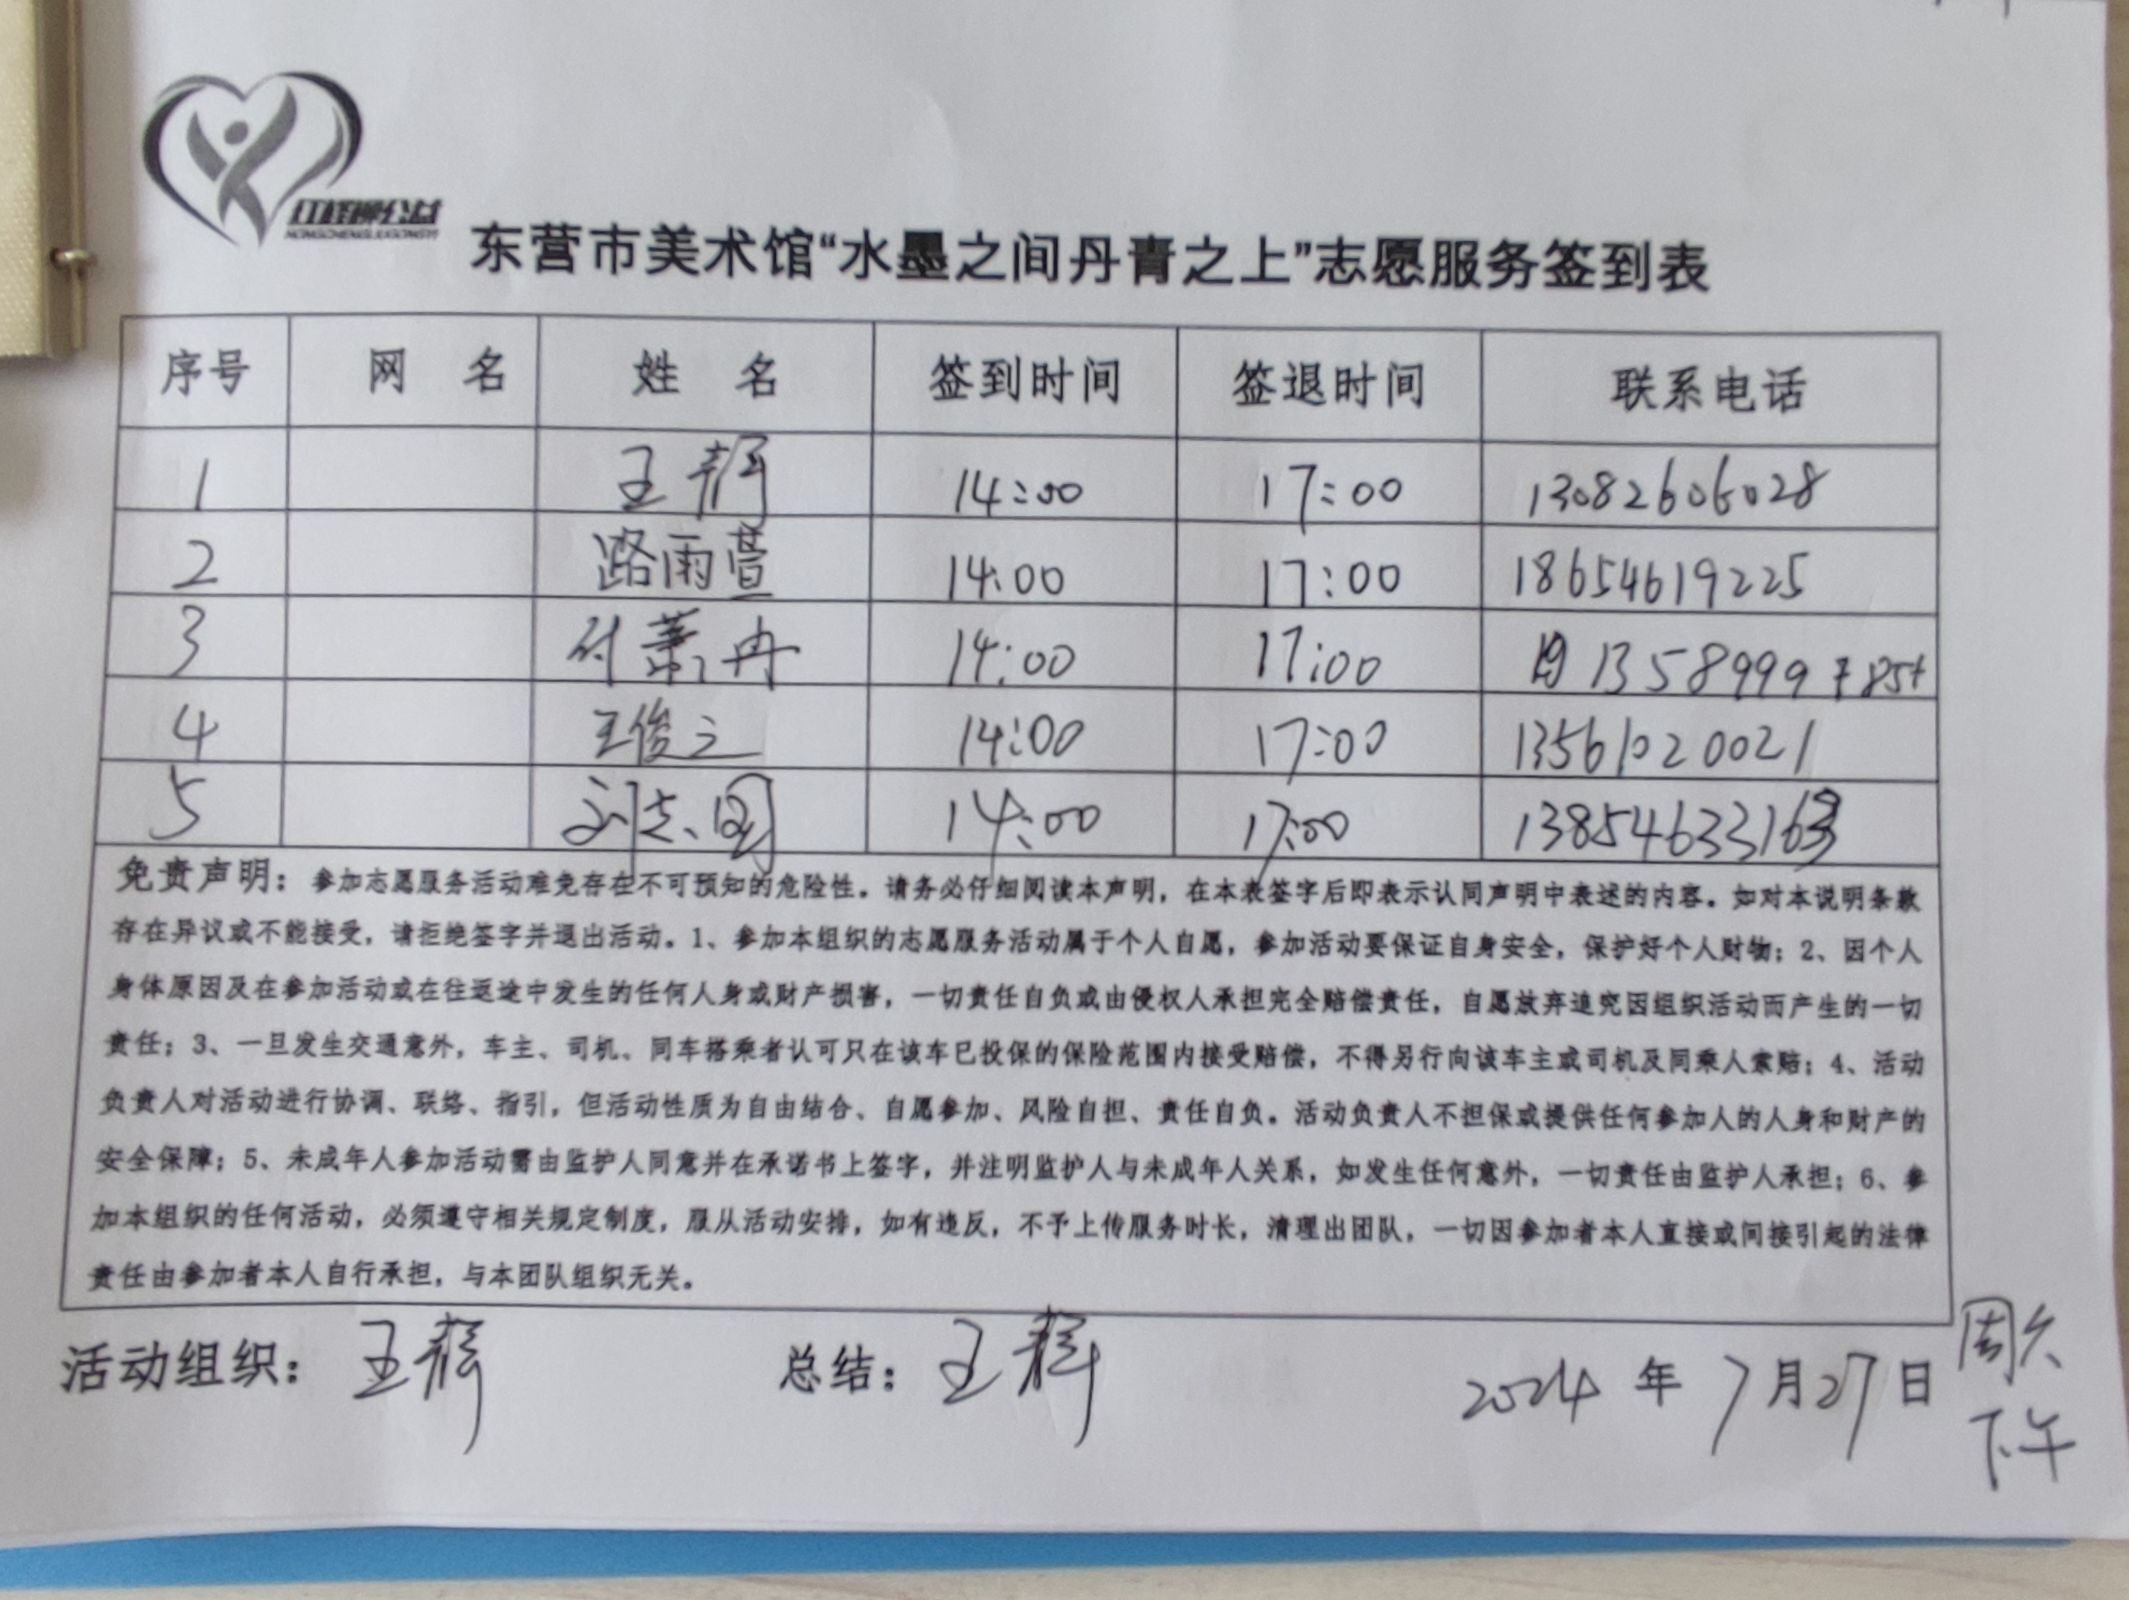 红柽柳公益
东营市美术馆“水墨之间丹青之上”志愿服务签到表
序号 网 名 姓 名 签到时间 签退时间 联系电话
1 王 14:00 17:00 13082606028
2 路雨萱 14:00 17:00 18654619225
3 付萧冉 14:00 17:00 1358999
4 王俊之 14:00 17:00 13561020021
5 刘志国 14:00 17:00
免责声明：参加志愿服务活动难免存在不可预知的危险性。请务必仔细阅读本声明，在本表签字后即表示认同声明中表述的内容。如对本说明条款
存在异议或不能接受，请拒绝签字并退出活动。1、参加本组织的志愿服务活动属于个人自愿，参加活动要保证自身安全，保护好个人财物；2、因个人
身体原因及在参加活动或在往返途中发生的任何人身或财产损害，一切责任自负或由侵权人承担完全赔偿责任，自愿放弃追究因组织活动而产生的一切
责任；3、一旦发生交通意外，车主、司机、同车搭乘者认可只在该车已投保的保险范围内接受赔偿，不得另行向该车主或司机及同乘人索赔；4、活动
负责人对活动进行协调、联络、指引，但活动性质为自由结合、自愿参加、风险自担、责任自负。活动负责人不担保或提供任何参加人的人身和财产的
安全保障；5、未成年人参加活动需由监护人同意并在承诺书上签字，并注明监护人与未成年人关系，如发生任何意外，一切责任由监护人承担；6、参
加本组织的任何活动，必须遵守相关规定制度，服从活动安排，如有违反，不予上传服务时长，清理出团队，一切因参加者本人直接或间接引起的法律
责任由参加者本人自行承担，与本团队组织无关。
活动组织：王 总结：王 2024 年 7 月 27 日 周六
下午